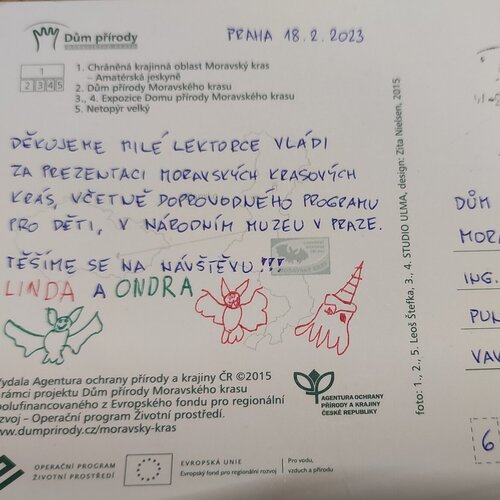 Dům přírody
MORAVSKÉHO KRASU
PRAHA 18.2.2023
1
2 3 4 5
1. Chráněná krajinná oblast Moravský kras
– Amatérská jeskyně
2. Dům přírody Moravského krasu
3., 4. Expozice Domu přírody Moravského krasu
5. Netopýr velký
DĚKUJEME MILÉ LEKTORCE VLÁDI
ZA PREZENTACI MORAVSKÝCH KRASOVÝCH
KRÁS, VČETNĚ DOPROVODNÉHO PROGRAMU
PRO DĚTI, V NÁRODNÍM MUZEU V PRAZE.
TĚŠÍME SE NA NÁVŠTĚVU!!!
LINDA A ONDRA
Vydala Agentura ochrany přírody a krajiny ČR ©2015
rámci projektu Dům přírody Moravského krasu
polufinancovaného z Evropského fondu pro regionální
zvoj - Operační program Životní prostředí.
www.dumprirody.cz/moravsky-kras
AGENTURA OCHRANY
PŘÍRODY A KRAJINY
ČESKÉ REPUBLIKY
OPERAČNÍ PROGRAM
ŽIVOTNÍ PROSTŘEDÍ
EVROPSKÁ UNIE
Evropský fond pro regionální rozvoj
Pro vodu,
vzduch a přírodu
foto: 1., 2., 5. Leoš Štefka, 3., 4. STUDIO ULMA, design: Zita Nielsen, 2015
DŮM
MORA
ING.
PUN
VAV
6